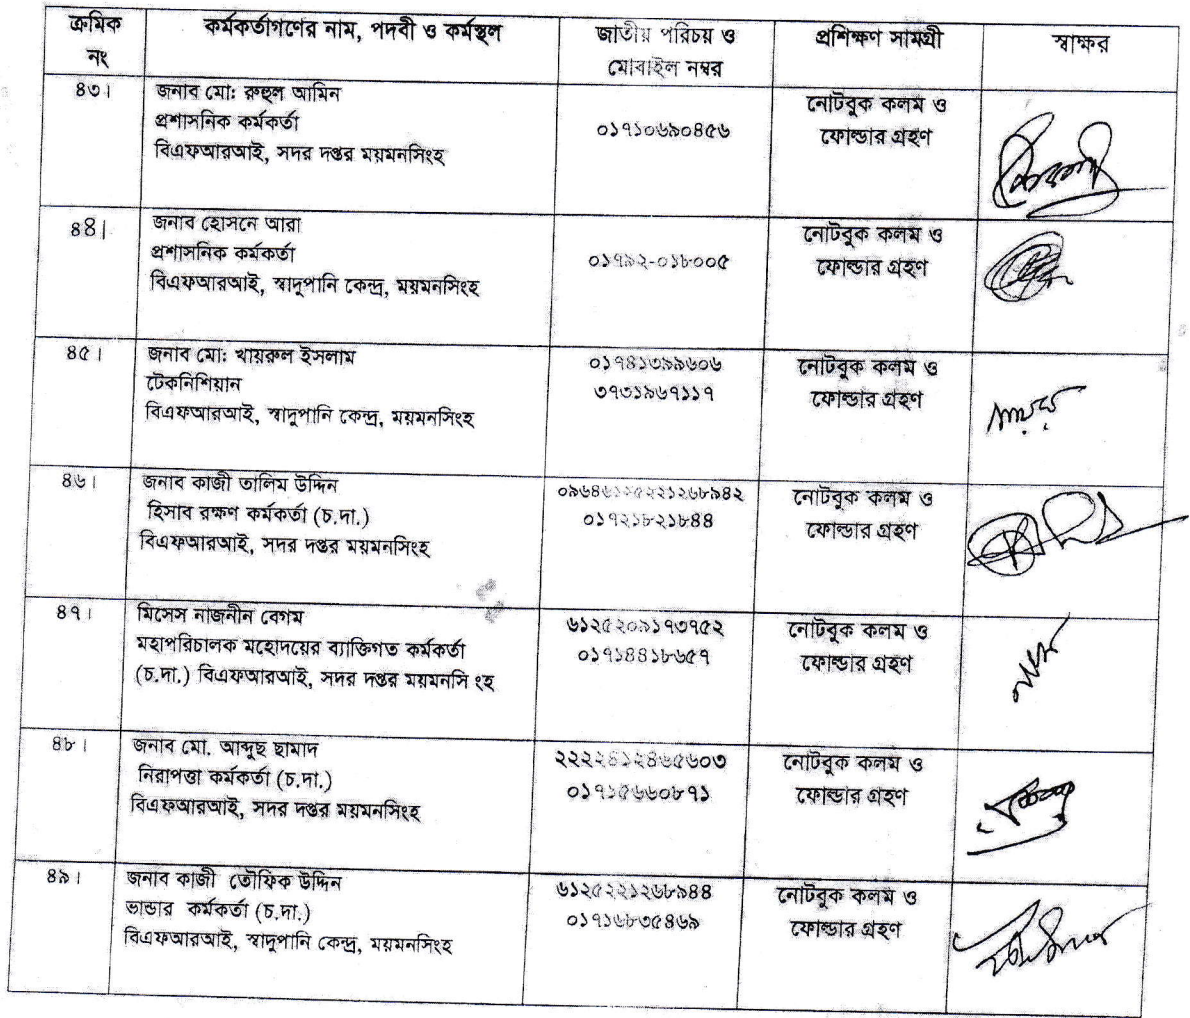 ক্রমিক নং | কর্মকর্তাগণের নাম, পদবী ও কর্মস্থল | জাতীয় পরিচয় ও মোবাইল নম্বর | প্রশিক্ষণ সামগ্রী | স্বাক্ষর
৪৩।
জনাব মো: রুহুল আমিন
প্রশাসনিক কর্মকর্তা
বিএফআরআই, সদর দপ্তর ময়মনসিংহ
০১৭১০৬৯০৪৫৬
নোটবুক কলম ও
ফোল্ডার গ্রহণ
৪৪|
জনাব হোসনে আরা
প্রশাসনিক কর্মকর্তা
বিএফআরআই, স্বাদুপানি কেন্দ্র, ময়মনসিংহ
০১৭৯২-০১৮০০৫
নোটবুক কলম ও
ফোল্ডার গ্রহণ
৪৫।
জনাব মো: খায়রুল ইসলাম
টেকনিশিয়ান
বিএফআরআই, স্বাদুপানি কেন্দ্র, ময়মনসিংহ
০১৭৪১৩৯৯৬০৬
৩৭৩১৯৬৭১১৭
নোটবুক কলম ও
ফোল্ডার গ্রহণ
৪৬।
জনাব কাজী তালিম উদ্দিন
হিসাব রক্ষণ কর্মকর্তা (চ.দা.)
বিএফআরআই, সদর দপ্তর ময়মনসিংহ
০১৭২১৮২১৮৪৪
নোটবুক কলম ও
ফোল্ডার গ্রহণ
৪৭।
মিসেস নাজনীন বেগম
মহাপরিচালক মহোদয়ের ব্যাক্তিগত কর্মকর্তা
(চ.দা.) বিএফআরআই, সদর দপ্তর ময়মনসি ংহ
৬১২৫২০৯১৭৩৭৫২
০১৭১৪৪১৮৬৫৭
নোটবুক কলম ও
ফোল্ডার গ্রহণ
৪৮।
জনাব মো. আব্দুছ ছামাদ
নিরাপত্তা কর্মকর্তা (চ.দা.)
বিএফআরআই, সদর দপ্তর ময়মনসিংহ
০১৭১৫৬৬০৮৭১
নোটবুক কলম ও
ফোল্ডার গ্রহণ
৪৯।
জনাব কাজী তৌফিক উদ্দিন
ভান্ডার কর্মকর্তা (চ.দা.)
বিএফআরআই, স্বাদুপানি কেন্দ্র, ময়মনসিংহ
৬১২৫২২১২৬৮৯৪৪
০১৭১৬৮৩৫৪৬৯
নোটবুক কলম ও
ফোল্ডার গ্রহণ